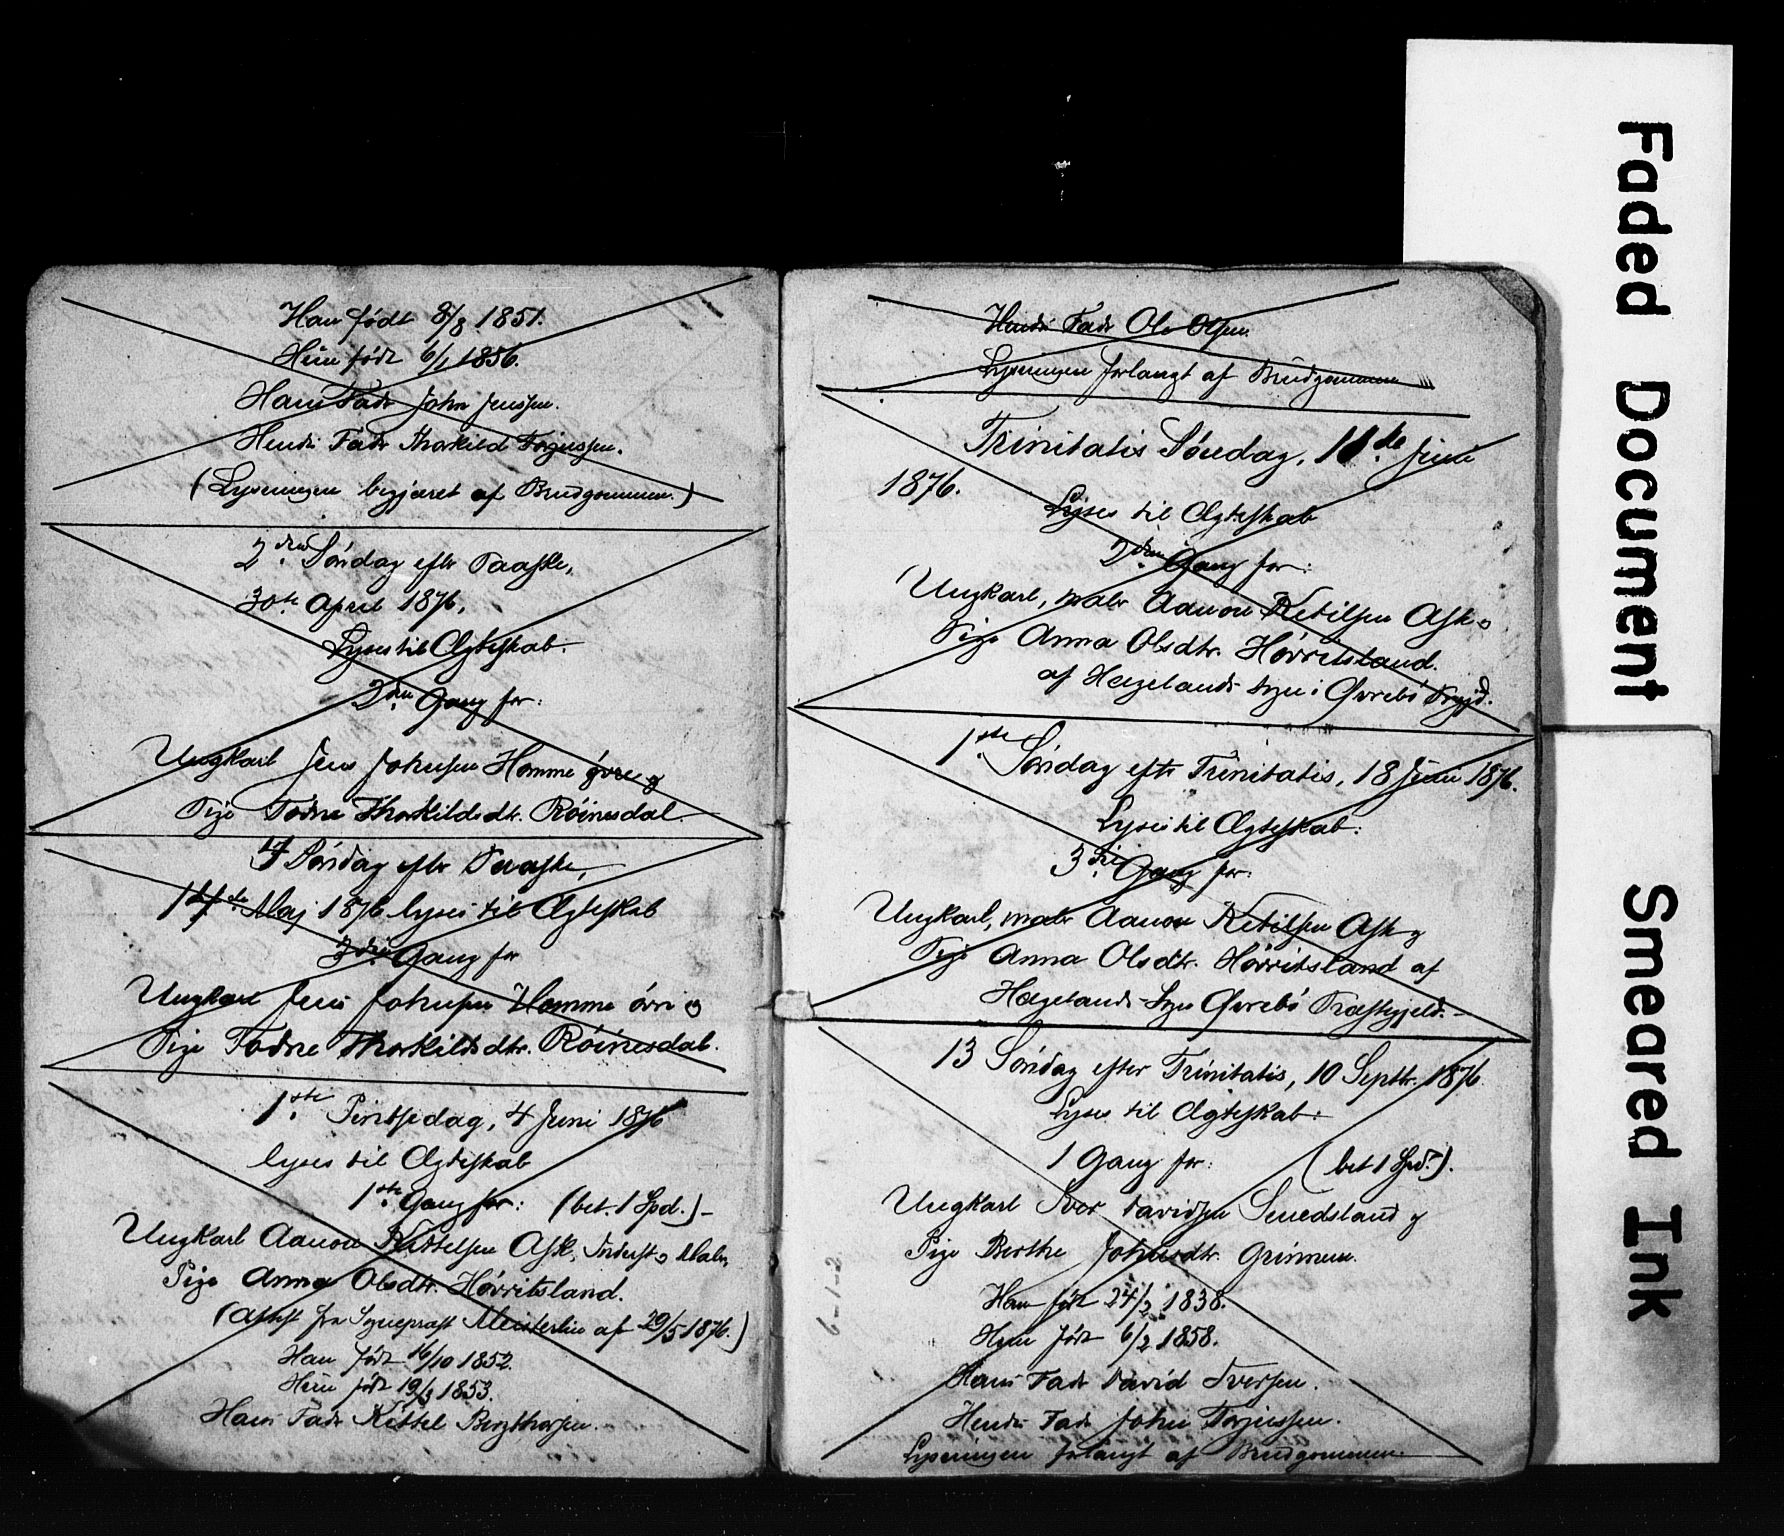 Han født 8/8 1851.
Hun født 6/1 1856.
Hans Fader John Jenssen.
Hendes Fader Thorkild Torjussen.
(Lysningen begjæret af Brudgommen.)
2den Søndag efter Paaske,
30te April 1876,
Lyses til Ægteskab.
2den Gang for:
Ungkarl Jens Johnsen Homme øvre og
Pige Todne Thorkildsdtr. Røinesdal.
4 Søndag efter Paaske,
14de Maj 1876 lyses til Ægteskab
3die Gang for
Ungkarl Jens Johnsen Homme øvre og
Pige Todne Thorkildsdtr. Røinesdal.
1ste Pintsedag, 4 Juni 1876
lyses til Ægteskab
1ste Gang for: (bet. 1 Spd.) –
Ungkarl Aanon Kittelsen Ask, Inderst og Maler,
Pige Anna Olsdtr. Høvritsland.
(Attest fra Sognepræst Meisterlin af 29/5 1876.)
Han født 16/10 1852.
Hun født 19/3 1853.
Hans Fader Kittel Bergthorsen.
Hendes Fader Ole Olsen.
Lysningen forlangt af Brudgommen
Trinitatis Søndag, 11te Juni
1876.
Lyses til Ægteskab
2den Gang for:
Ungkarl, maler Aanon Ketilsen Ask og
Pige Anna Olsdtr. Høvritsland.
af Hægelands Sogn i Øvrebø Prgjd.
1ste Søndag efter Trinitatis, 18 Juni 1876.
Lyses til Ægteskab:
3die Gang for:
Ungkarl, maler Aanon Ketilsen Ask og
Pige Anna Olsdtr. Høvritsland af
Hægelands Sogn Øvrebø Præstegjeld. –
13 Søndag efter Trinitatis, 10 Septbr. 1876
Lyses til Ægteskab:
1 Gang for: (bet 1 Spd.).
Ungkarl Iver Davidsen Senedsland og
Pige Berthe Johnsdtr. Grinnem.
Han født 24/2 1838.
Hun født 6/2 1858.
Hans Fader David Iversen.
Hendes Fader John Torjussen.
Lysningen forlangt af Brudgommen
6-1-2
Faded Document
Smeared Ink